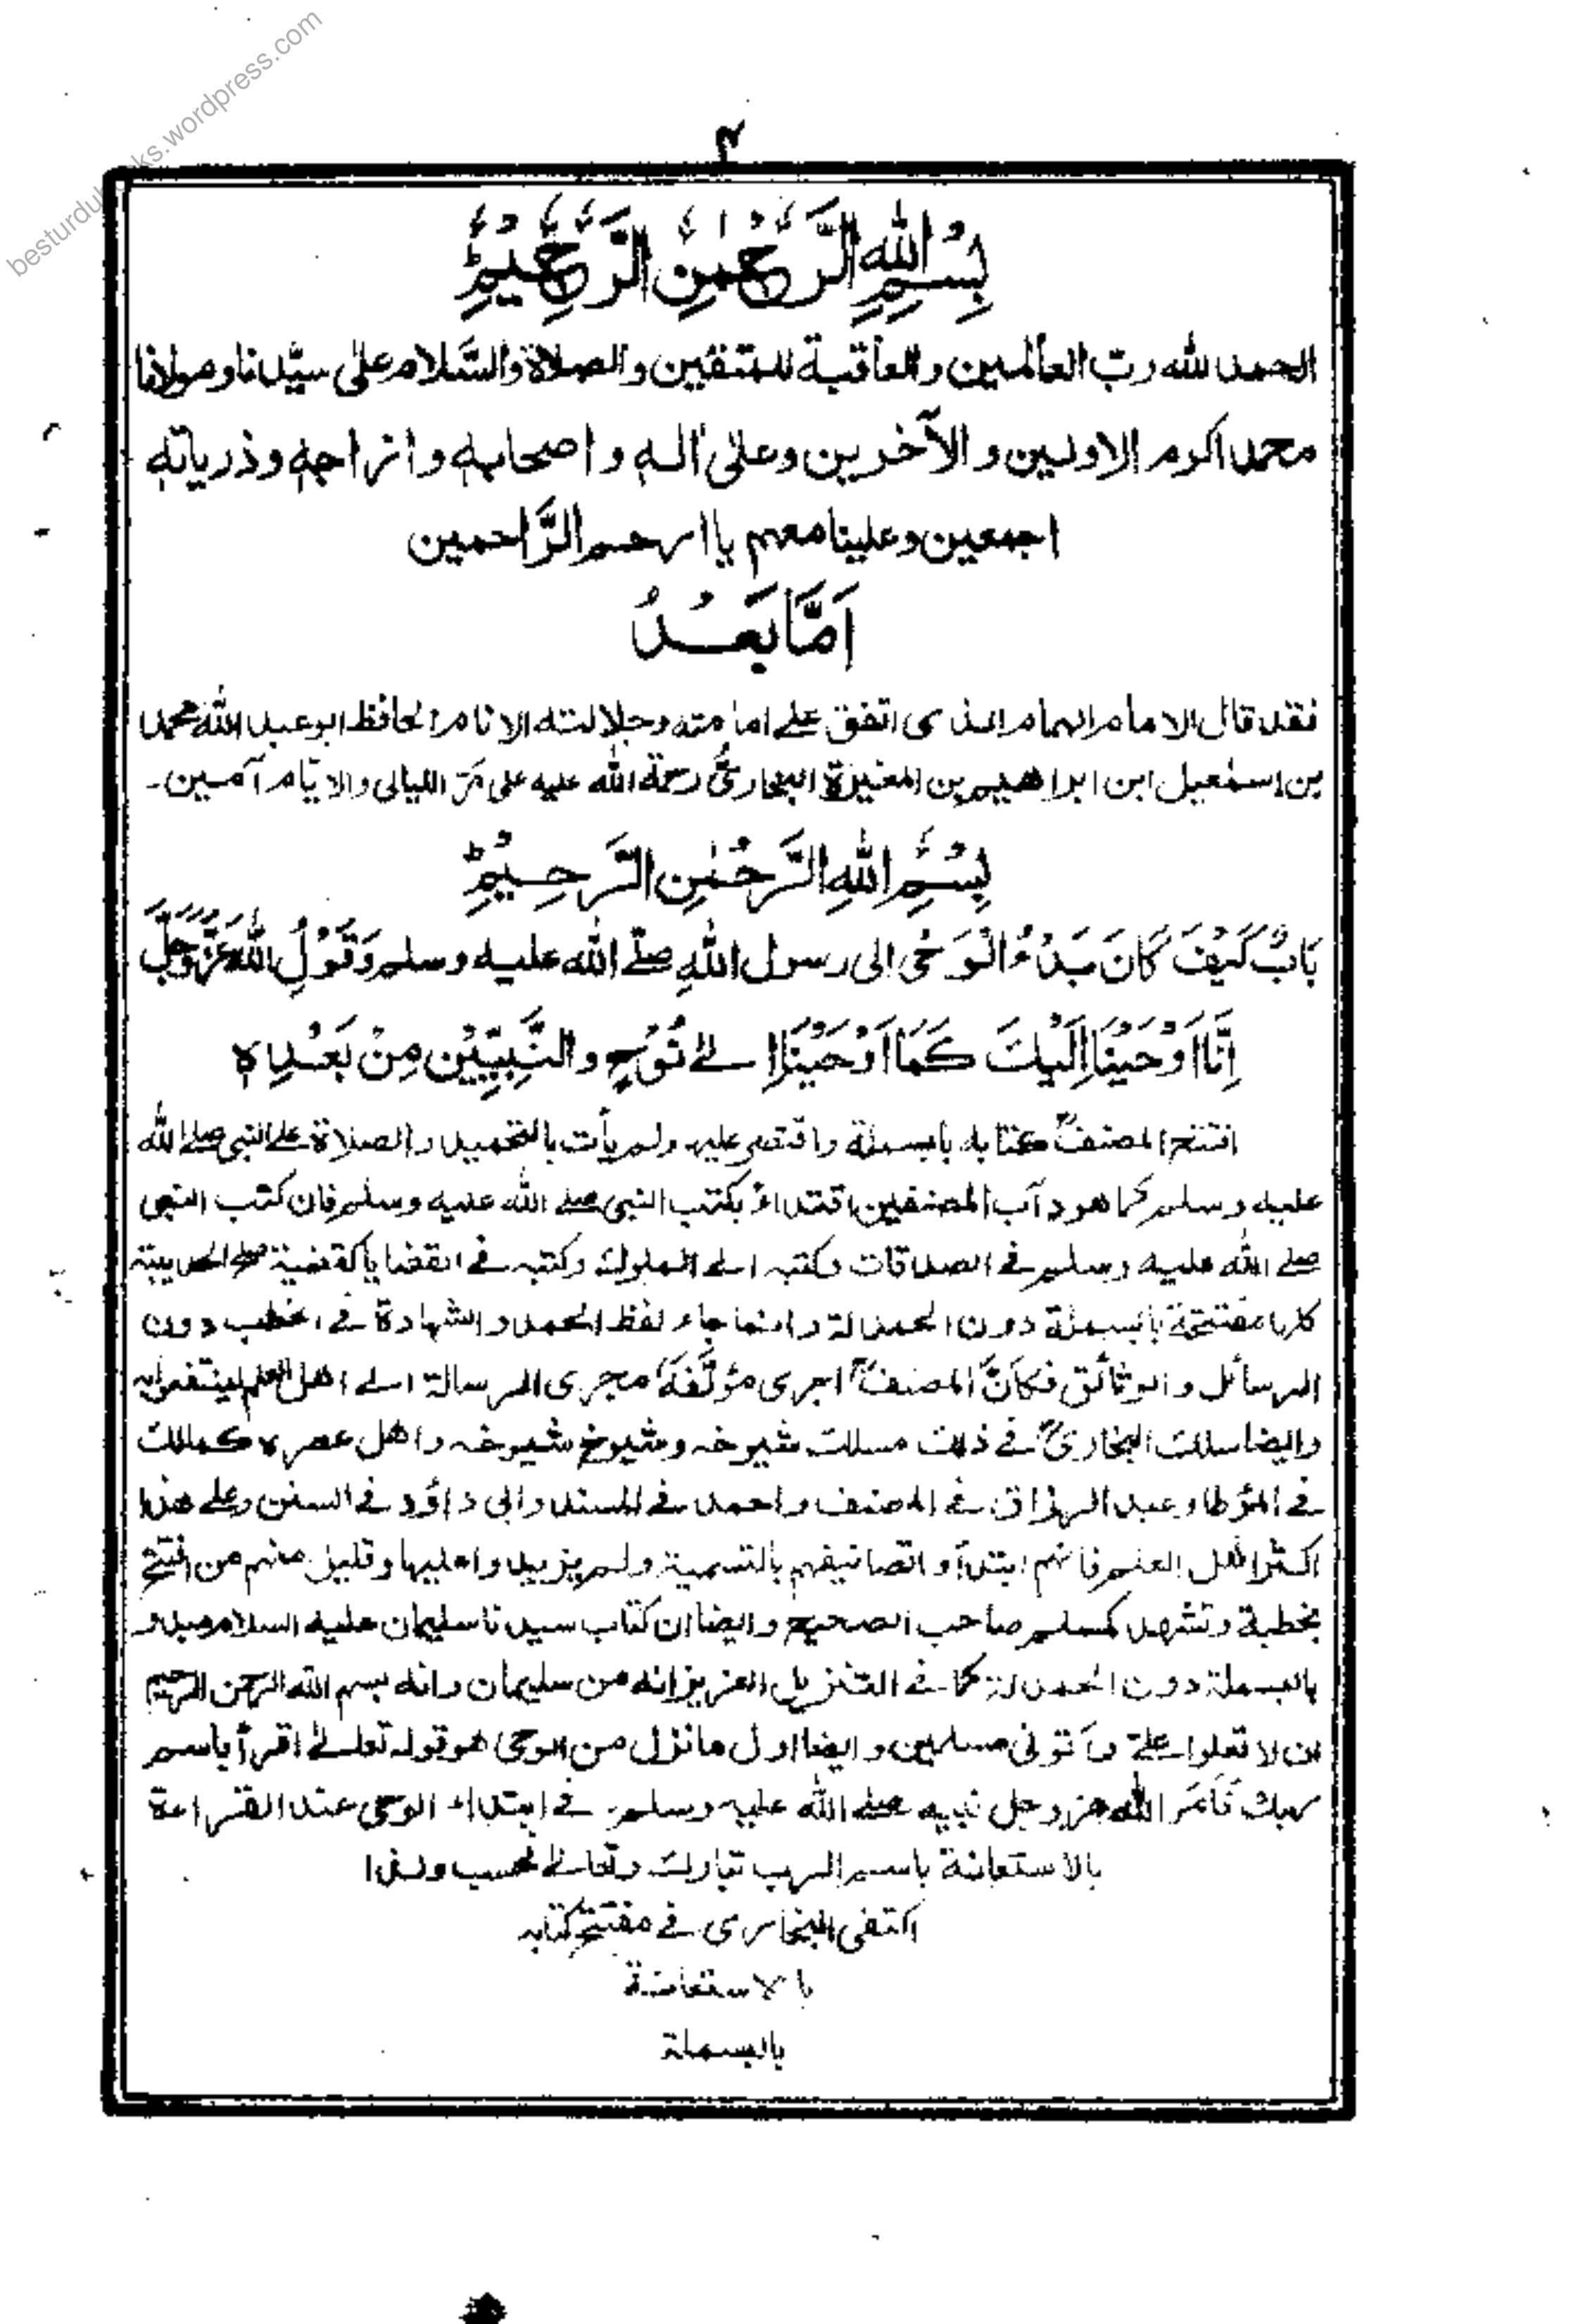 besturdubooks.wordpress.com
۴
بِسْمِ اللهِ الرَّحْمٰنِ الرَّحِيْمِ
الحمد لله رب العالمين والعاقبة للمتقين والصلاة والسَّلام على سيّدنا ومولانا
محمد اكرم الاولين والآخرين وعلى آله واصحابه وازواجه وذرياته
اجمعين وعلينا معهم يا ارحم الرَّاحمين
اَمَّا بَعْدُ
فقد قال الامام الهمام الذى اتفق على امامته وجلالته الانام الحافظ ابو عبد الله محمد
بن اسمٰعيل ابن ابراهيم بن المغيرة البخارىؒ رحمة الله عليه على مَرّ الليالى والايّام آمين۔
بِسْمِ اللهِ الرَّحْمٰنِ الرَّحِيْمِ
بَابٌ كَيْفَ كَانَ بَدْءُ الْوَحْى الى رسول اللهِ صلّے الله عليه وسلم وَقَوْلُ اللهِ عَزَّ وَجَلَّ
اِنَّا اَوْحَيْنَا اِلَيْكَ كَمَا اَوْحَيْنَا اِلے نُوْحٍ والنَّبِيّيْن مِنْ بَعْدِه
افتتح المصنفؒ كتابه بالبسملة واقتصر عليه ولم يأت بالتحميد والصلاة على النبى صلے الله
عليه وسلم كما هو دآب المصنفين اقتداءً بكتب النبى صلے الله عليه وسلم فان كتب النبى
صلے الله عليه وسلم فے الصدقات وكتبه الے الملوك وكتبه فے القضايا كقضية صلح الحديبية
كلها مفتتحة بالبسملة دون الحمدلة وانما جاء لفظ الحمد والشهادة فے الخطب دون
الرسائل والوثائق فكانّ المصنفؒ اجرى مؤلّفهَ مجرى الرسالة الے اهل العلم لينتفعوا به
وايضا سلك البخارىؒ فے ذلك مسلك شيوخه وشيوخ شيوخه واهل عصره كمالك
فے المؤطا وعبد الرزاق فے المصنف واحمد فے المسند وابى داؤد فے السنن وعلے هذا
اكثر اهل العلم فانهم ابتدأوا تصانيفهم بالتسمية ولم يزيدوا عليها وقليل منهم من افتتح
بخطبة وتشهد كمسلم صاحب الصحيح وايضا ان كتاب سيدنا سليمان عليه السلام مبدو
بالبسملة دون الحمدلة كما فے التنزيل العزيز انه من سليمان وانه بسم الله الرحمن الرحيم
ان لا تعلوا علےّ وأتونى مسلمين وايضا اول ما نزل من الوحى هو قوله تعالےٰ اقرأ باسم
ربك فَاَمَرَ الله عز وجل نبيه صلے الله عليه وسلم فے ابتداء الوحى عند القراءة
بالاستعانة باسم الرب تبارك وتعالےٰ فحسب ولذا
اكتفى البخارى فے مفتتح كتابه
بالاستعانة
بالبسملة